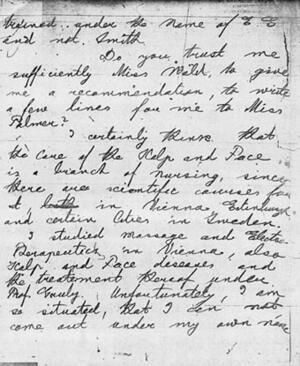 trained.. under the name of E E
and not Smith.
Do you trust me
sufficiently Miss Wald, to give
me a recommendation, to write
a few lines for me to Miss
Palmer?
I certainly think that
the care of the Kalp and Face
is a branch of nursing, since
there are scientific courses for
it, both in Vienna Edinburgh,
and certain Cities in Sweden.
I studied massage and Electro
Therapeutics, in Vienna, also
Kalp, and Face diseases and
the treatement thereof under
Prof. Unfortunately, I am
so situated, that I can not
come out under my own name